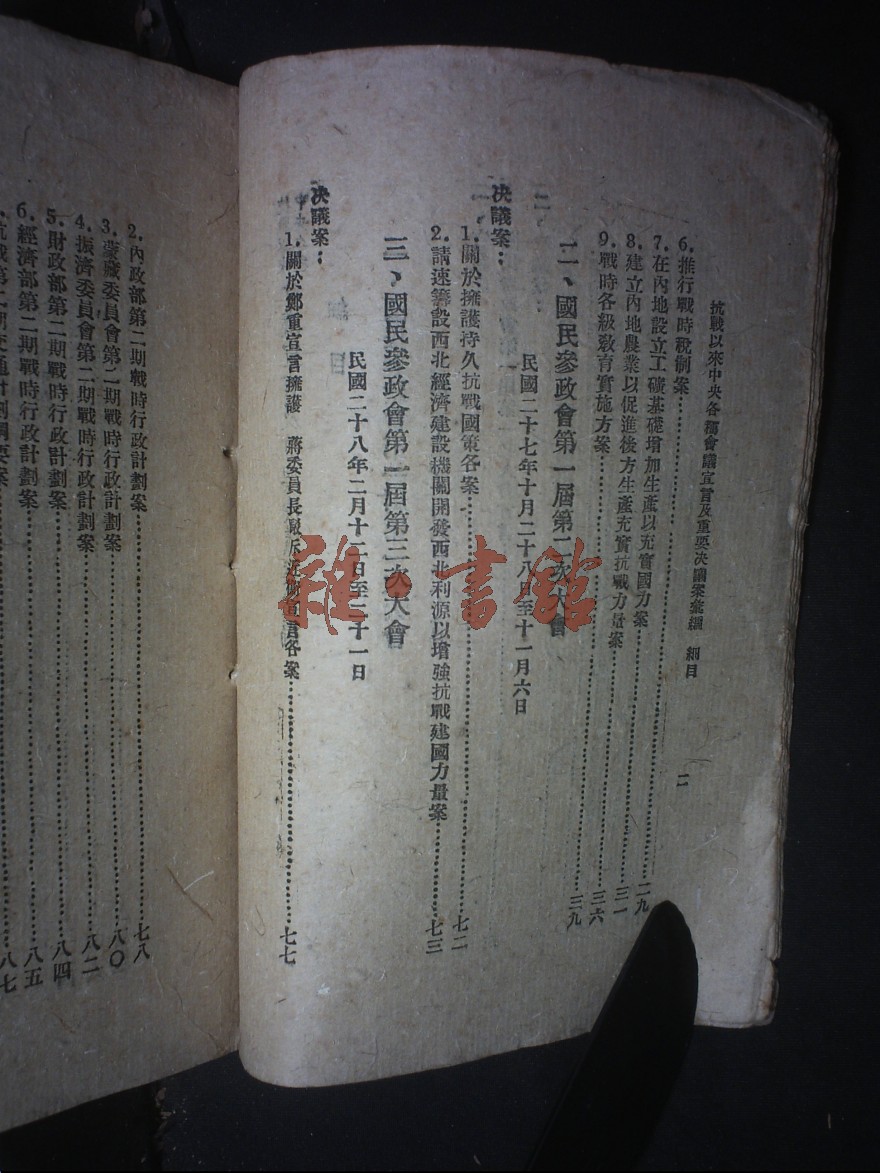 抗戰以來中央各種會議宣言及重要決議案彙編　細目　二
6.推行戰時稅制案……二九
7.在內地設立工礦基礎增加生產以充實國力案……三一
8.建立內地農業以促進後方生產充實抗戰力量案……三六
9.戰時各級教育實施方案……三九
二、國民參政會第一屆第二次大會
民國二十七年十月二十八日至十一月六日
決議案：
1.關於擁護持久抗戰國策各案……七二
2.請速籌設西北經濟建設機關開發西北利源以增強抗戰建國力量案……七三
三、國民參政會第一屆第三次大會
民國二十八年二月十二日至二十一日
決議案：
1.關於鄭重宣言擁護　蔣委員長駁斥近衛宣言各案……七七
2.內政部第二期戰時行政計劃案……七八
3.蒙藏委員會第二期戰時行政計劃案……八〇
4.振濟委員會第二期戰時行政計劃案……八二
5.財政部第二期戰時行政計劃案……八四
6.經濟部第二期戰時行政計劃案……八五
抗戰第二期交通計劃綱要案……八七
雜·書館